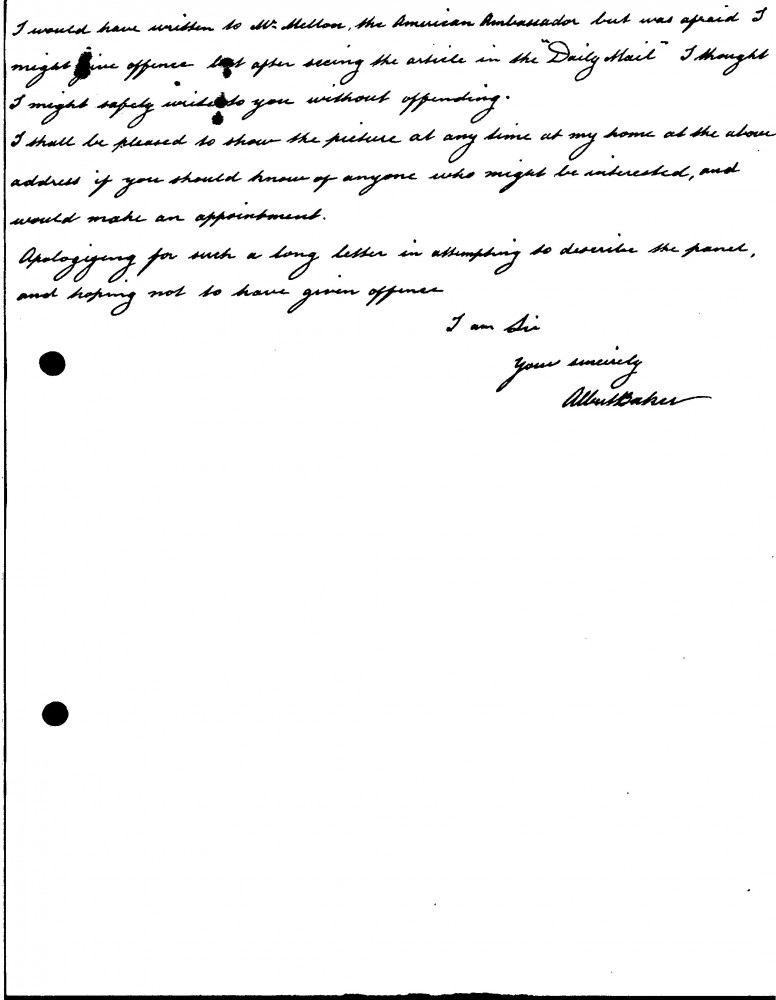 I would have written to Mr. Mellon, the American Ambassador but was afraid I
might give offence but after seeing the article in the "Daily Mail" I thought
I might safely write to you without offending.
I shall be pleased to show the picture at any time at my home at the above
address if you should know of anyone who might be interested, and
would make an appointment.
Apologizing for such a long letter in attempting to describe the panel,
and hoping not to have given offence
I am Sir
Yours sincerely
Albert Baker